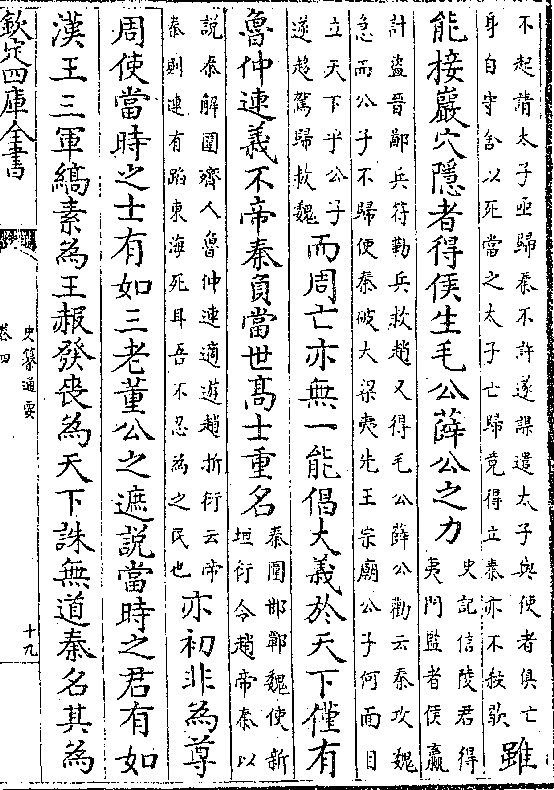 不起請太子亟歸秦不許遂謀遣太子與使者俱亡
身自守舍以死當之太子亡歸竟得立秦亦不殺歇
雖
能接巖穴隱者得侯生毛公薛公之力
史記信陵君得
夷門監者侯嬴
計盜晉鄙兵符勒兵救趙又得毛公薛公勸云秦攻魏
急而公子不歸使秦破大梁夷先王宗廟公子何面目
立天下乎公子
遂趍駕歸救魏
而周亡亦無一能倡大義於天下僅有
魯仲連義不帝秦負當世髙士重名
秦圍邯鄲魏使新
垣衍令趙帝秦以
説秦解圍齊人魯仲連適遊趙折衍云帝
秦則連有蹈東海死耳吾不忍為之民也
亦初非為尊
周使當時之士有如三老董公之遮説當時之君有如
漢王三軍縞素為王赧發喪為天下誅無道秦名其為
欽定四庫全書
史纂通要
卷四
十九